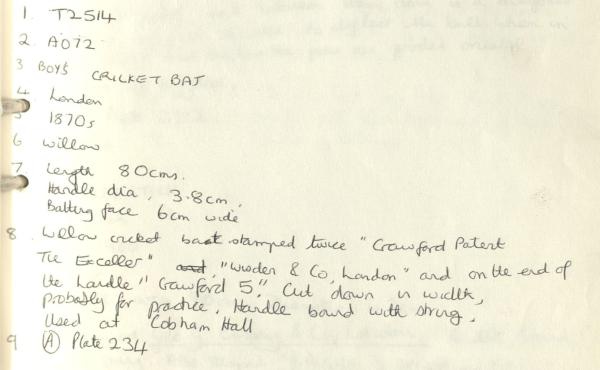 1. T2514
2. A072
3 BOYS CRICKET BAT
4 London
5 1870s
6 Willow
7 Length 80cms.
Handle dia, 3.8cm.
Batting face 6cm wide
8. Willow cricket bat stamped twice "Crawford Patent
The Exceller" and, "Wisden & Co, London" and on the end of
the handle "Crawford 5". Cut down in width,
probably for practice. Handle bound with string.
Used at Cobham Hall
9 (A) Plate 234